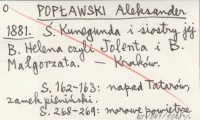 O
POPŁAWSKI Aleksander
1881. S. Kunegunda i siostry jej
B. Helena czyli Jolenta i B.
Małgorzata. — Kraków.
S. 162-163: napad Tatarów,
zamek pieniński.
S. 268-269: morowe powietrze